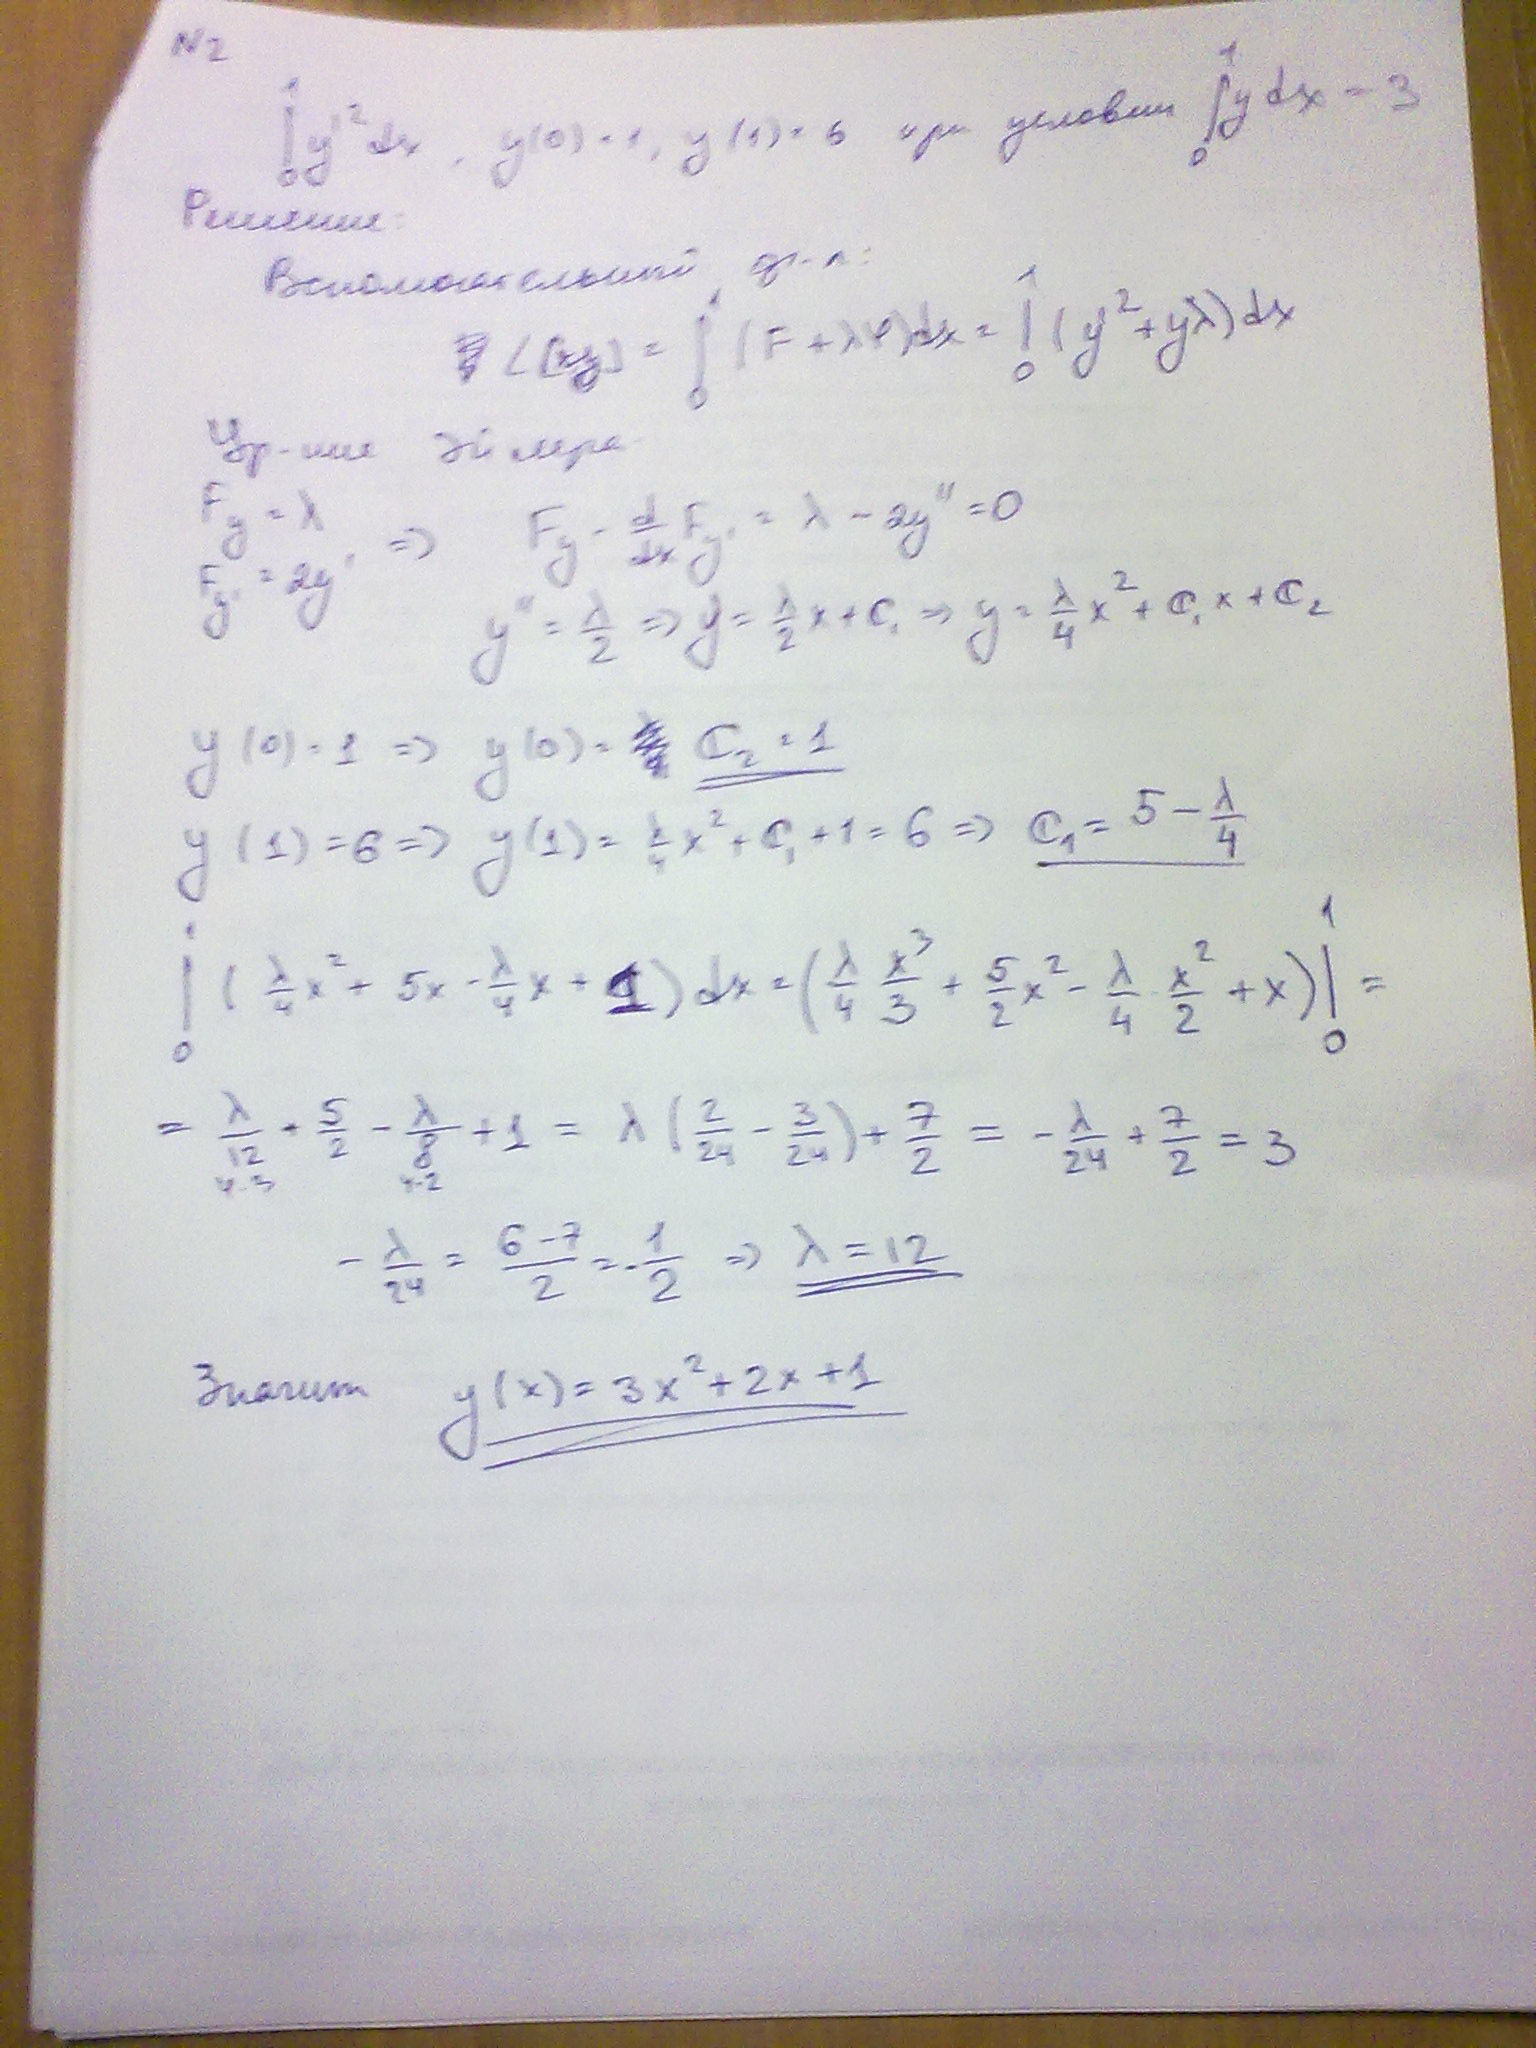 N2
∫₀¹ y'² dx, y(0)=1, y(1)=6 при условии ∫₀¹ y dx = 3
Решение:
Вспомогательный ф-л:
L[y] = ∫₀¹ (F + λφ)dx = ∫₀¹ (y'² + yλ)dx
Ур-ние Эйлера
F_y = λ
F_y' = 2y' => F_y - d/dx F_y' = λ - 2y'' = 0
y'' = λ/2 => y' = λ/2 x + C₁ => y = λ/4 x² + C₁x + C₂
y(0)=1 => y(0) = C₂ = 1
y(1)=6 => y(1) = λ/4 x² + C₁ + 1 = 6 => C₁ = 5 - λ/4
∫₀¹ (λ/4 x² + 5x - λ/4 x + 1) dx = (λ/4 x³/3 + 5/2 x² - λ/4 · x²/2 + x)|₀¹ =
= λ/12 + 5/2 - λ/8 + 1 = λ(2/24 - 3/24) + 7/2 = -λ/24 + 7/2 = 3
4·3 4·2
-λ/24 = (6-7)/2 = -1/2 => λ = 12
Значит y(x) = 3x² + 2x + 1